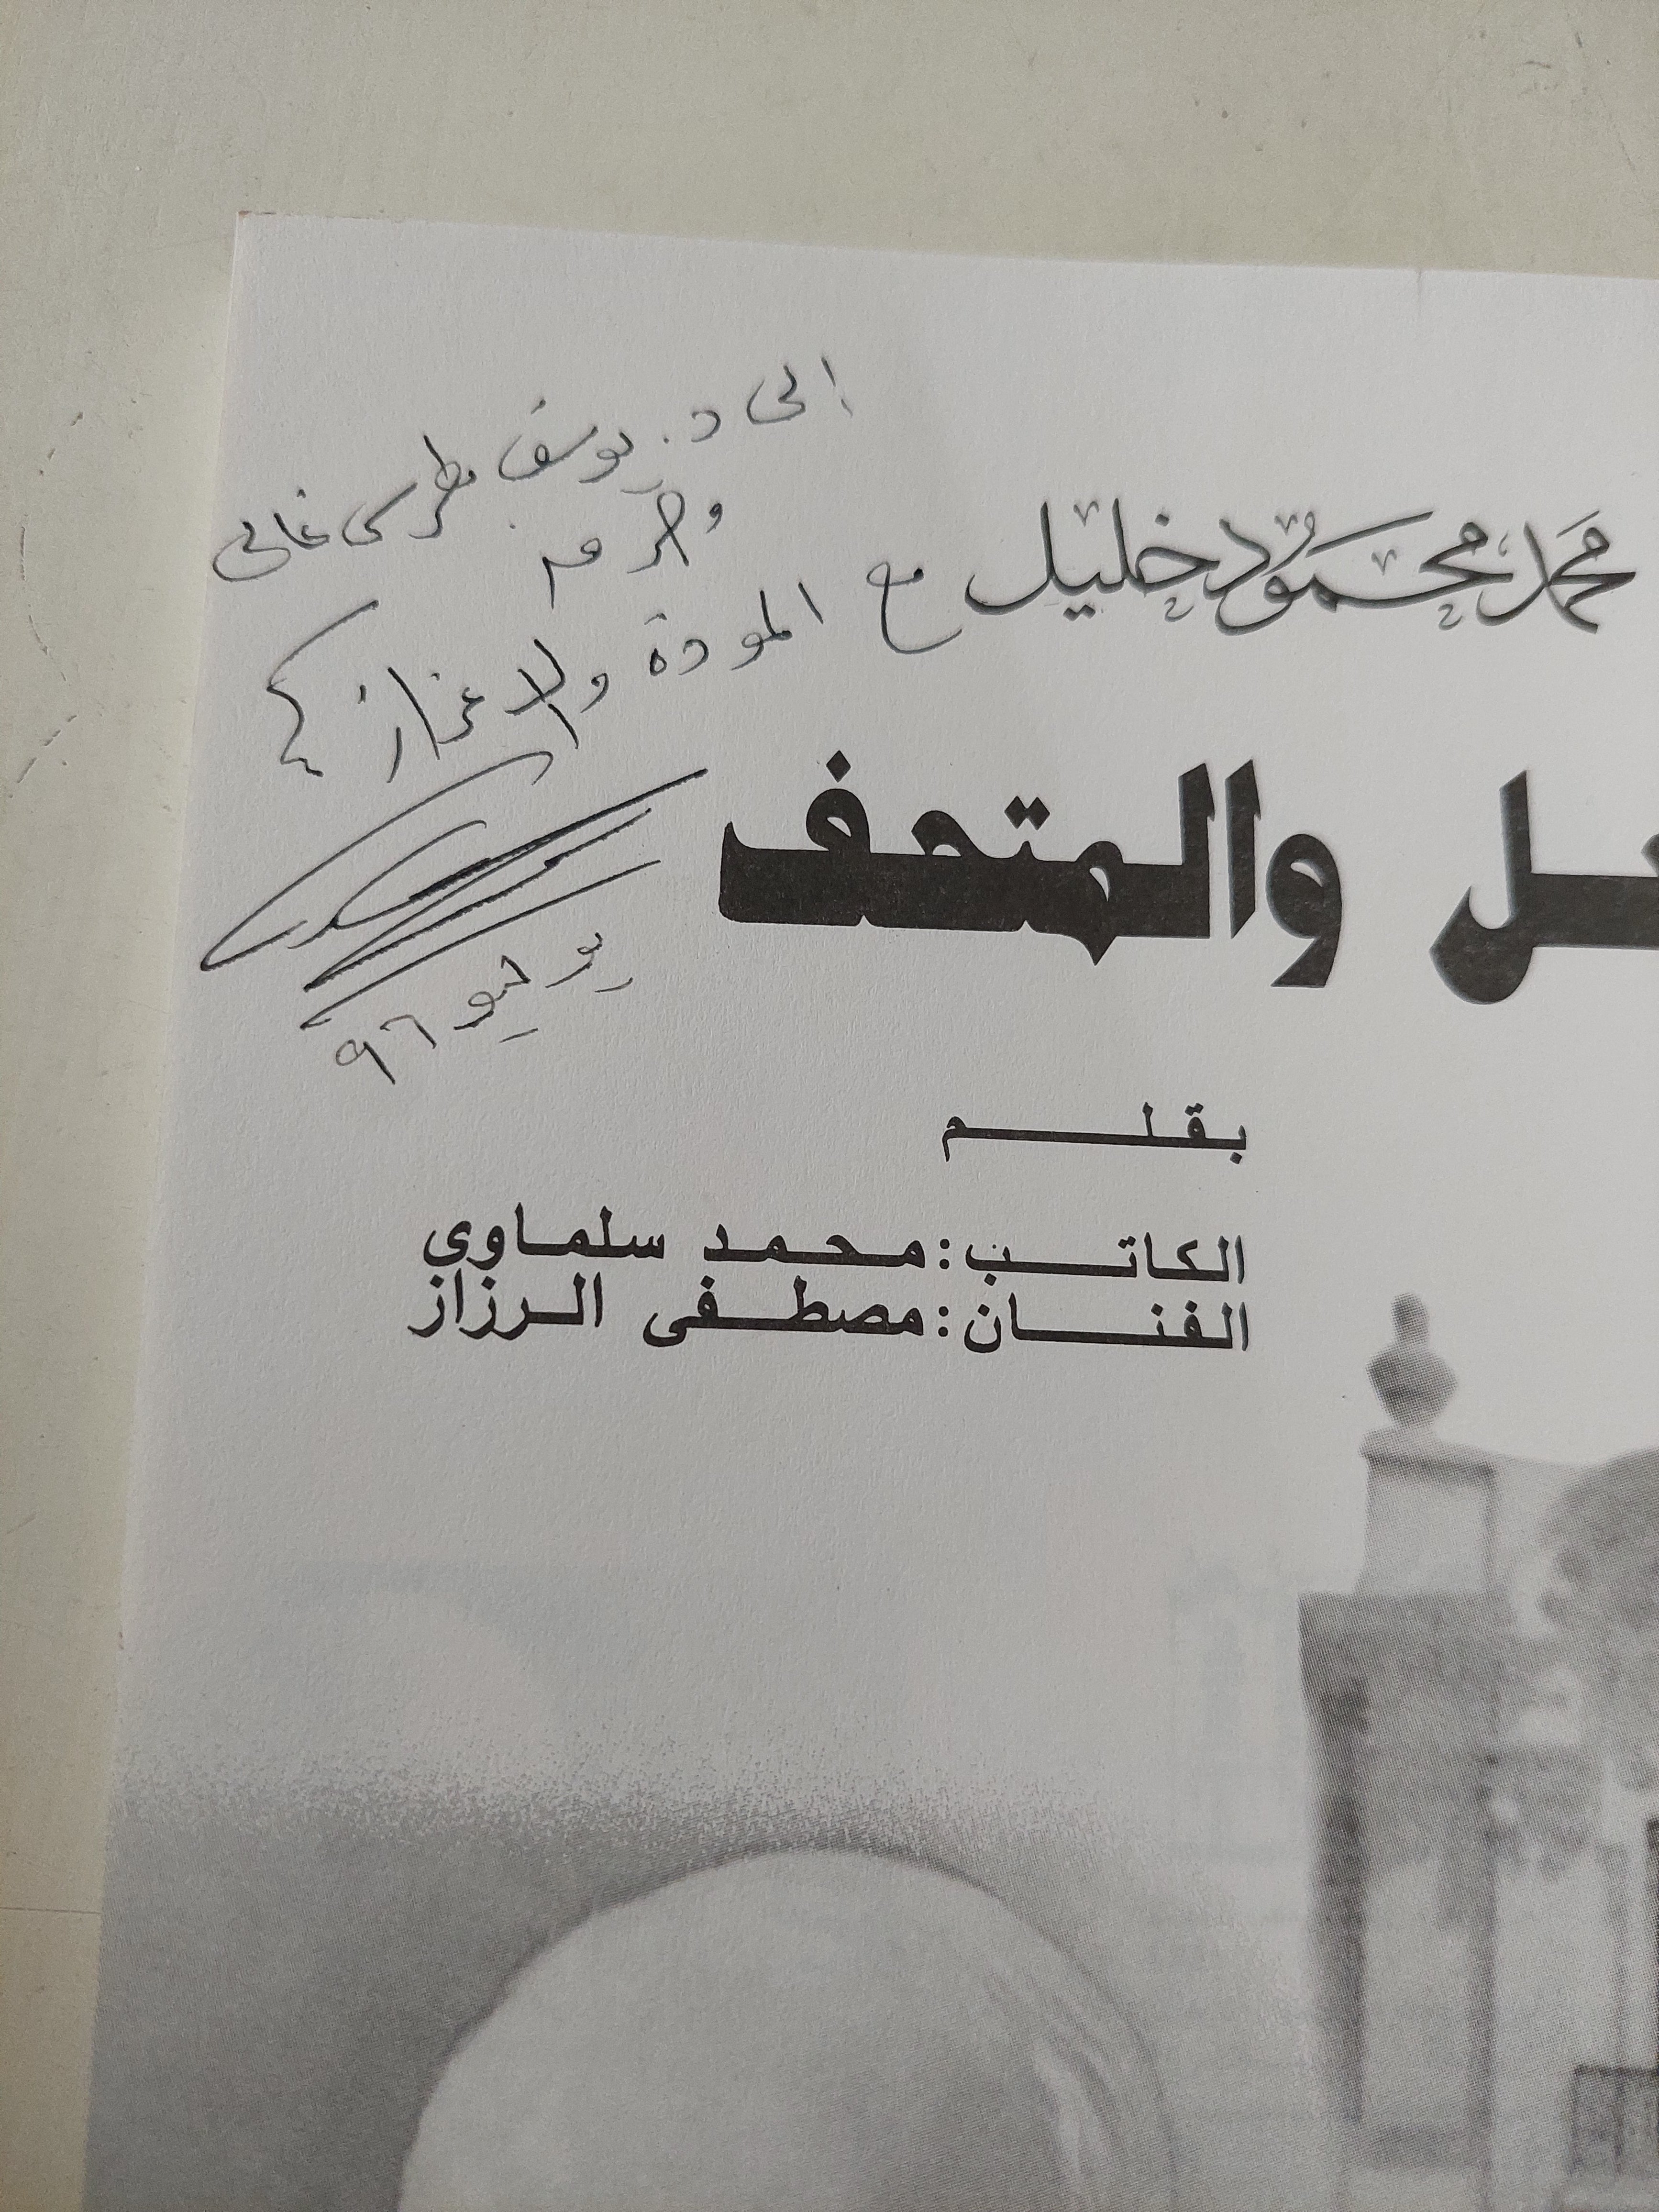 الى د. يوسف بطرس غالى
وحرمه
مع المودة والاعزاز
يوليو ٩٦
محمد محمود خليل
ـل والمتحف
بقلم
الكاتب: محمد سلماوى
الفنان: مصطفى الرزاز